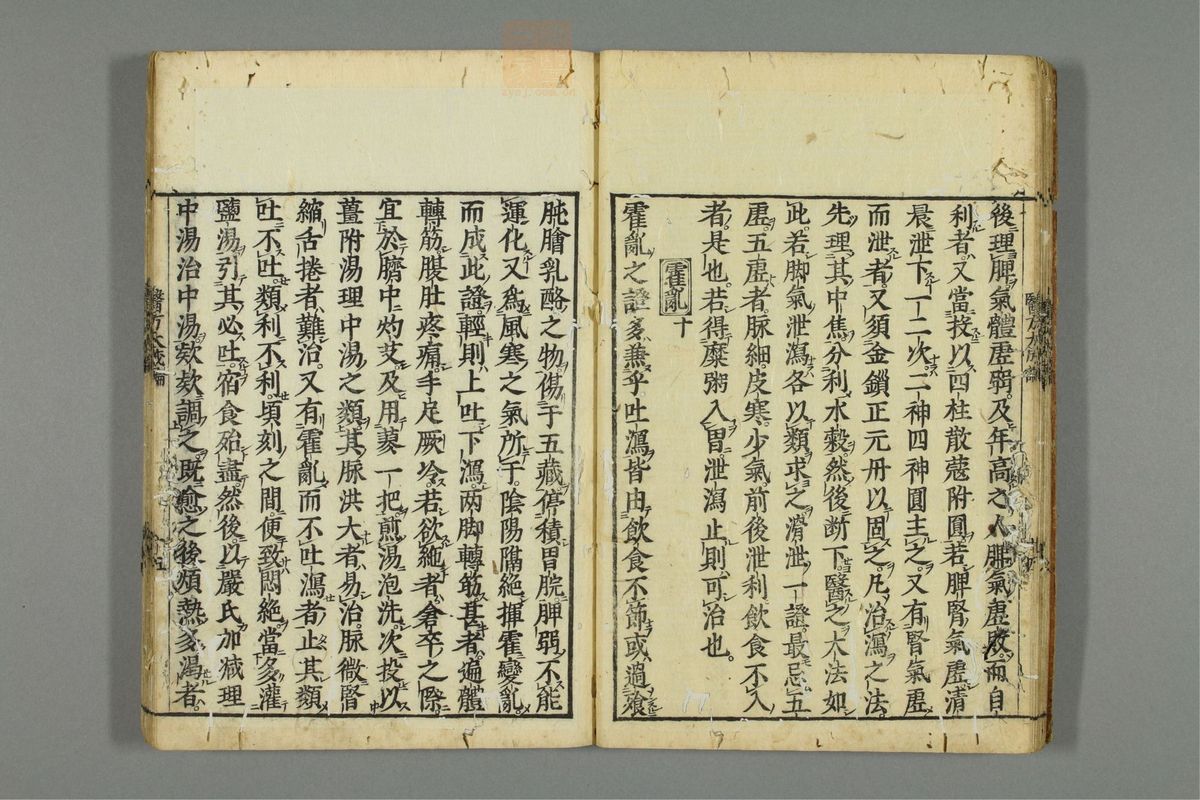 後理脾氣體虛弱及年高之人脾氣虛敗而自
利者又當投以四柱散蔻附圓若脾腎氣虛清
晨泄下一二次二神四神圓主之又有腎氣虛
而泄者又須金鎖正元丹以固之凡治瀉之法
先理其中焦分利水穀然後断下醫之大法如
此若脚氣泄瀉各以類求之滑泄一證最忌五
虛五虛者脉細皮寒少氣前後泄利飲食不入
者是也若得糜粥入胃泄瀉止則可治也
霍亂 十
霍亂之證多兼乎吐瀉皆由飲食不節或過飡
肫膾乳酪之物傷于五藏停積胃脘脾弱不能
運化又為風寒之氣所干陰陽隔絕揮霍變亂
而成此證輕則上吐下瀉两脚轉筋甚者遍體
轉筋腹肚疼痛手足厥冷若欲絕者倉卒之際
宜於臍中灼艾及用蓼一把煎湯泡洗次投以
薑附湯理中湯之類其脉洪大者易治脉微唇
縮舌捲者難治又有霍亂而不吐瀉者止其類
吐不吐類利不利頃刻之間便致悶絕當多灌
鹽湯引其必吐宿食殆盡然後以嚴氏加減理
中湯治中湯欵欵調之既愈之後煩熱多渴者